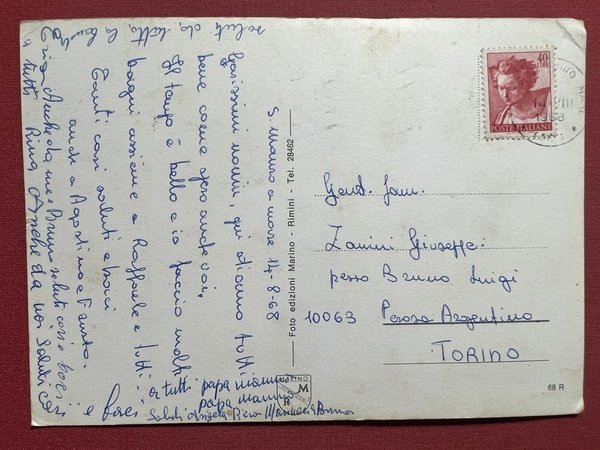 S. Mauro a mare 14-8-68
Carissimi nonni, qui stiamo tutti
bene come spero anche voi,
Il tempo è bello e io faccio molti
bagni assieme a Raffaele e tutti.
Tanti cari saluti e baci
anche a Agostino e Fausto.
Anche da me Bruno saluti cari e baci
a tutti Rina Anche da noi Saluti cari
e baci a tutti papà mamma
papà mamma
Saluti Angela Piero Bruno
saluti da tutta la
Foto edizioni Marino - Rimini - Tel. 28462
MARINO
M
R
40
LIRE
POSTE ITALIANE
14 VIII
1968
Gent. fam.
Zanini Giuseppe.
presso Bruno Luigi
10063 Perosa Argentina
TORINO
68 R